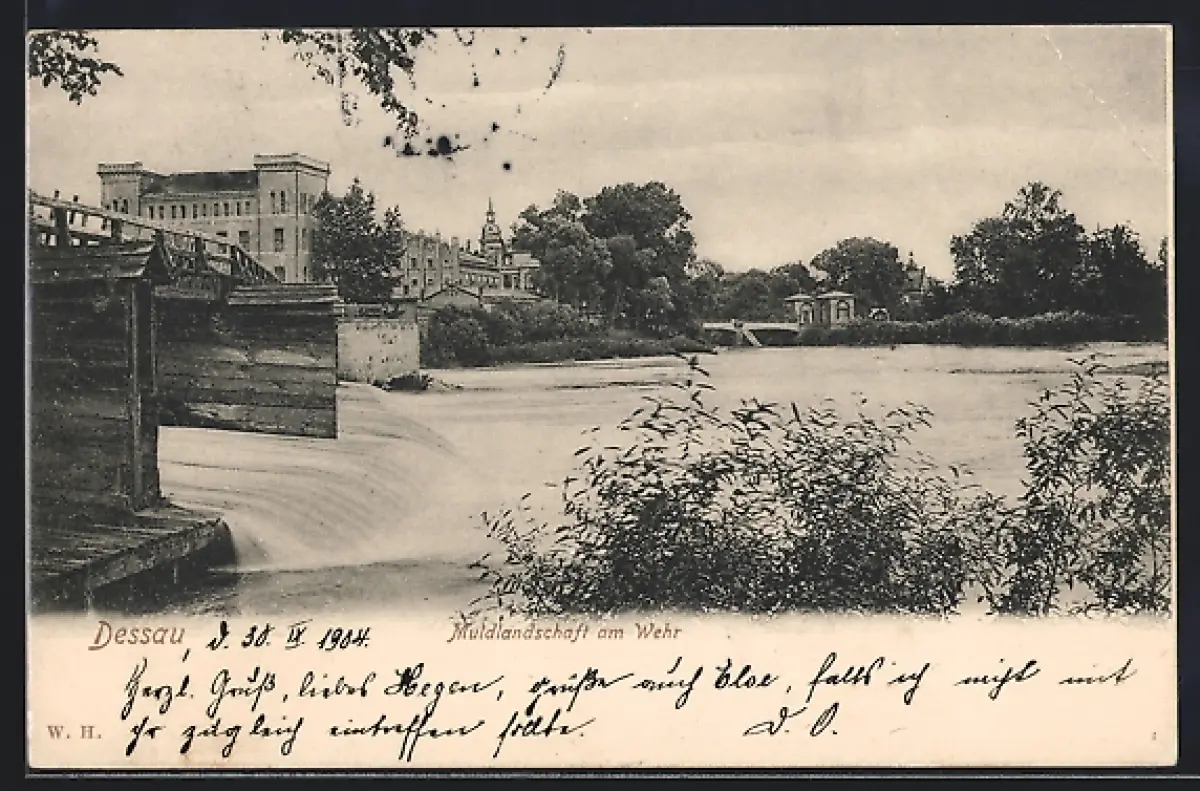 Dessau, d. 30. IX 1904. Muldlandschaft am Wehr
Herzl. Gruß, liebes Hegen, grüße auch Else, falls ich nicht mit
W. H. ihr zugleich eintreffen sollte. D. O.